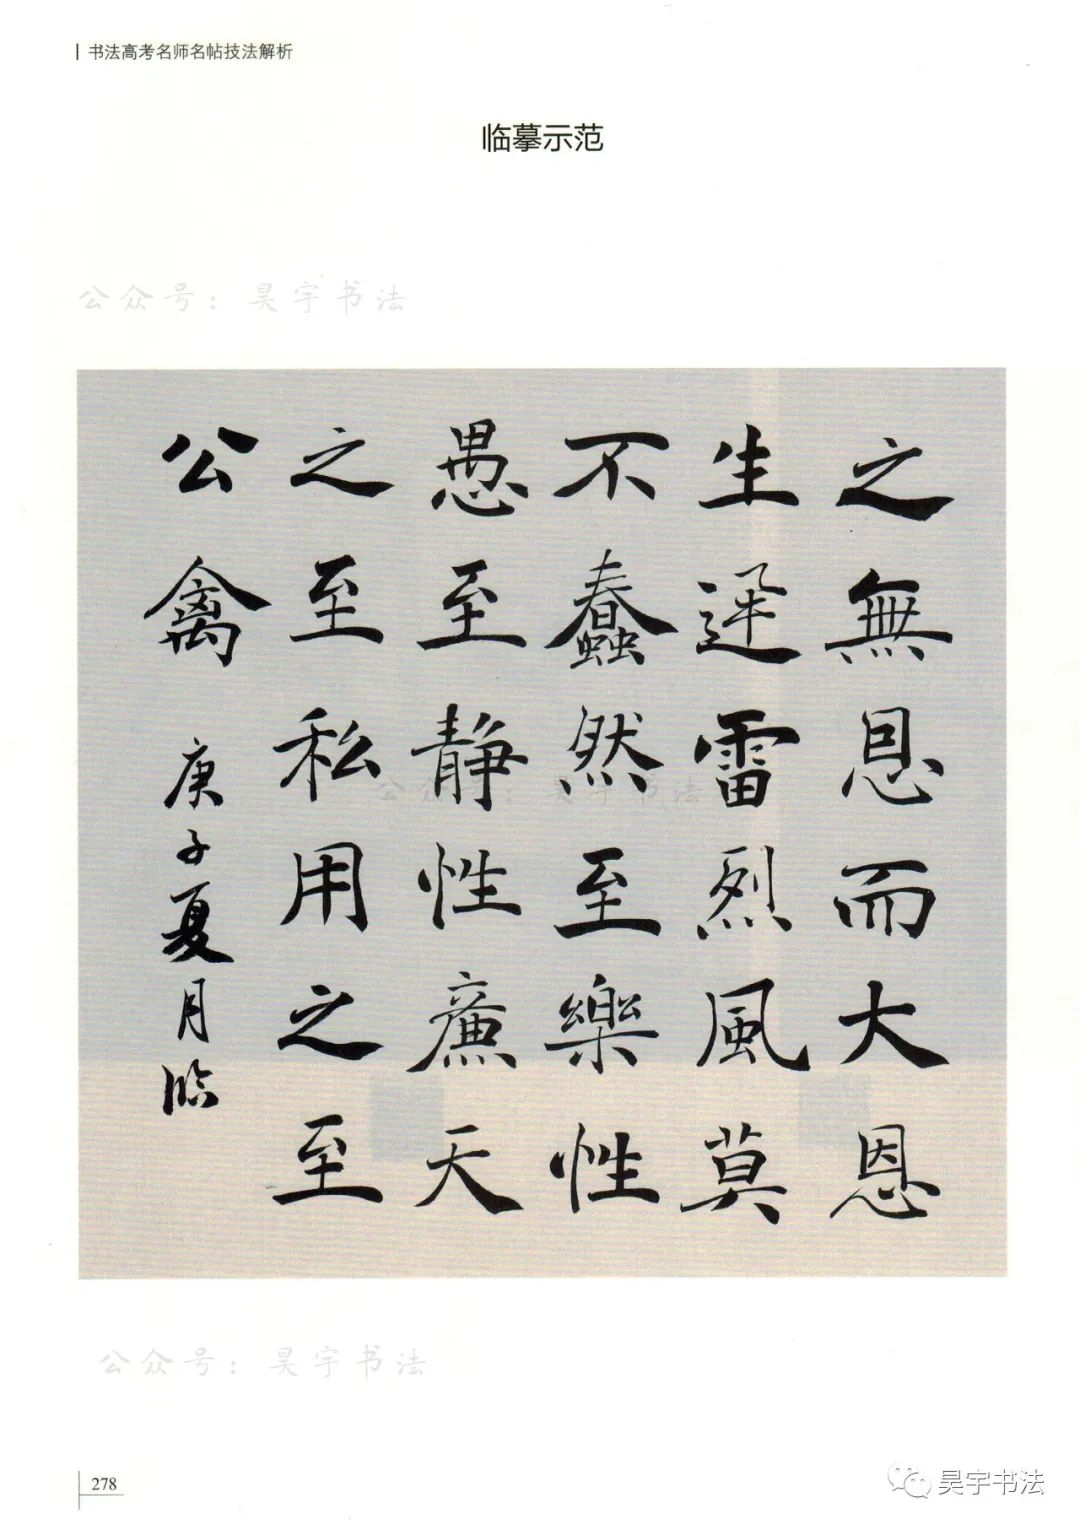 书法高考名师名帖技法解析
临摹示范
公众号：昊宇书法
之無恩而大恩
生迅雷烈風莫
不蠢然至樂性
愚至静性廉天
之至私用之至
公禽 庚子夏月临
公众号：昊宇书法
公众号：昊宇书法
278
昊宇书法